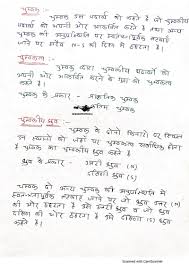 चुम्बक :-
चुम्बक उस पदार्थ को कहते है जो चुम्बकीय पदार्थ को
अपनी ओर आकर्षित करते है तथा अन्य चुम्बक
की अनुपस्थिति में स्वतंत्रतापूर्वक लटकाई
जाने पर सदैव N-S की दिशा में ठहरता है।
चुम्बकत्व :-
चुम्बक द्वारा चुम्बकीय पदार्थों को
अपनी ओर आकर्षित करने के गुण को चुम्बकत्व
कहते है।
चुम्बक के प्रकार - प्राकृतिक चुम्बक
चुम्बक
चुम्बकीय ध्रुव :-
चुम्बक के दोनों किनारों पर स्थित
उन स्थानों को जहाँ पर चुम्बकत्व सर्वाधिक होता
है चुम्बकीय ध्रुव कहते है।
ध्रुव के प्रकार - उत्तरी ध्रुव (N)
दक्षिणी ध्रुव (S)
चुम्बक को अन्य चुम्बक की अनुपस्थिति में
स्वतंत्रतापूर्वक लटकाने पर जो ध्रुव उत्तर (N)
की ओर ठहरता है उसे उत्तरी ध्रुव व जो ध्रुव
दक्षिण की ओर ठहरता है उसे दक्षिणी (S) ध्रुव
कहते है।
Scanned with CamScanner